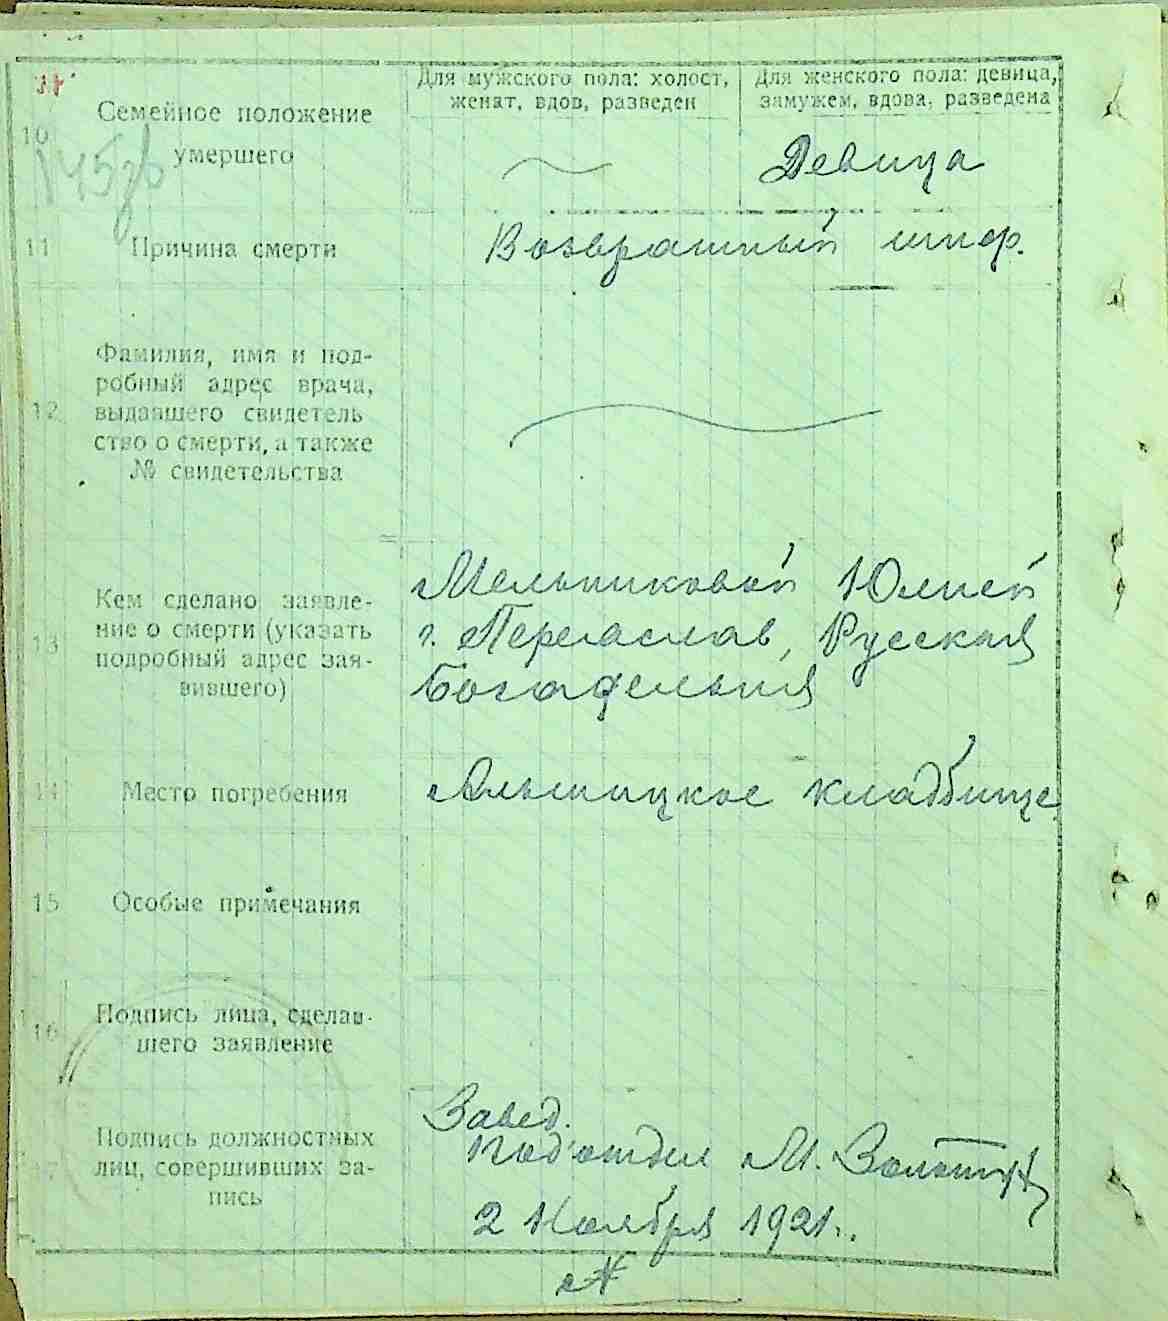 Для мужского пола: холост, женат, вдов, разведен
Для женского пола: девица, замужем, вдова, разведена
10 Семейное положение умершего
Девица
11 Причина смерти
Возвратный тиф.
12 Фамилия, имя и под-
робный адрес врача,
выдавшего свидетель
ство о смерти, а также
№ свидетельства
13 Кем сделано заявле-
ние о смерти (указать
подробный адрес зая-
вившего)
Мельниковой Юлией
г. Переяслав, Русская
Богадельня
14 Место погребения
кладбище
15 Особые примечания
16 Подпись лица, сделав-
шего заявление
17 Подпись должностных
лиц, совершивших за-
пись
Завед.
Подотдел М.
2 Ноября 1921 г.